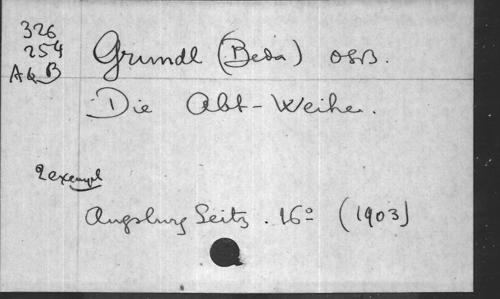 326
254
A6B
Grundl (Beda) OSB.
Die Abt-Weihe.
2 exempl
Augsburg Seitz. 16° (1903)